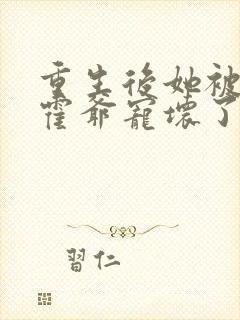 重生後她被
霍爺寵壞了
習仁